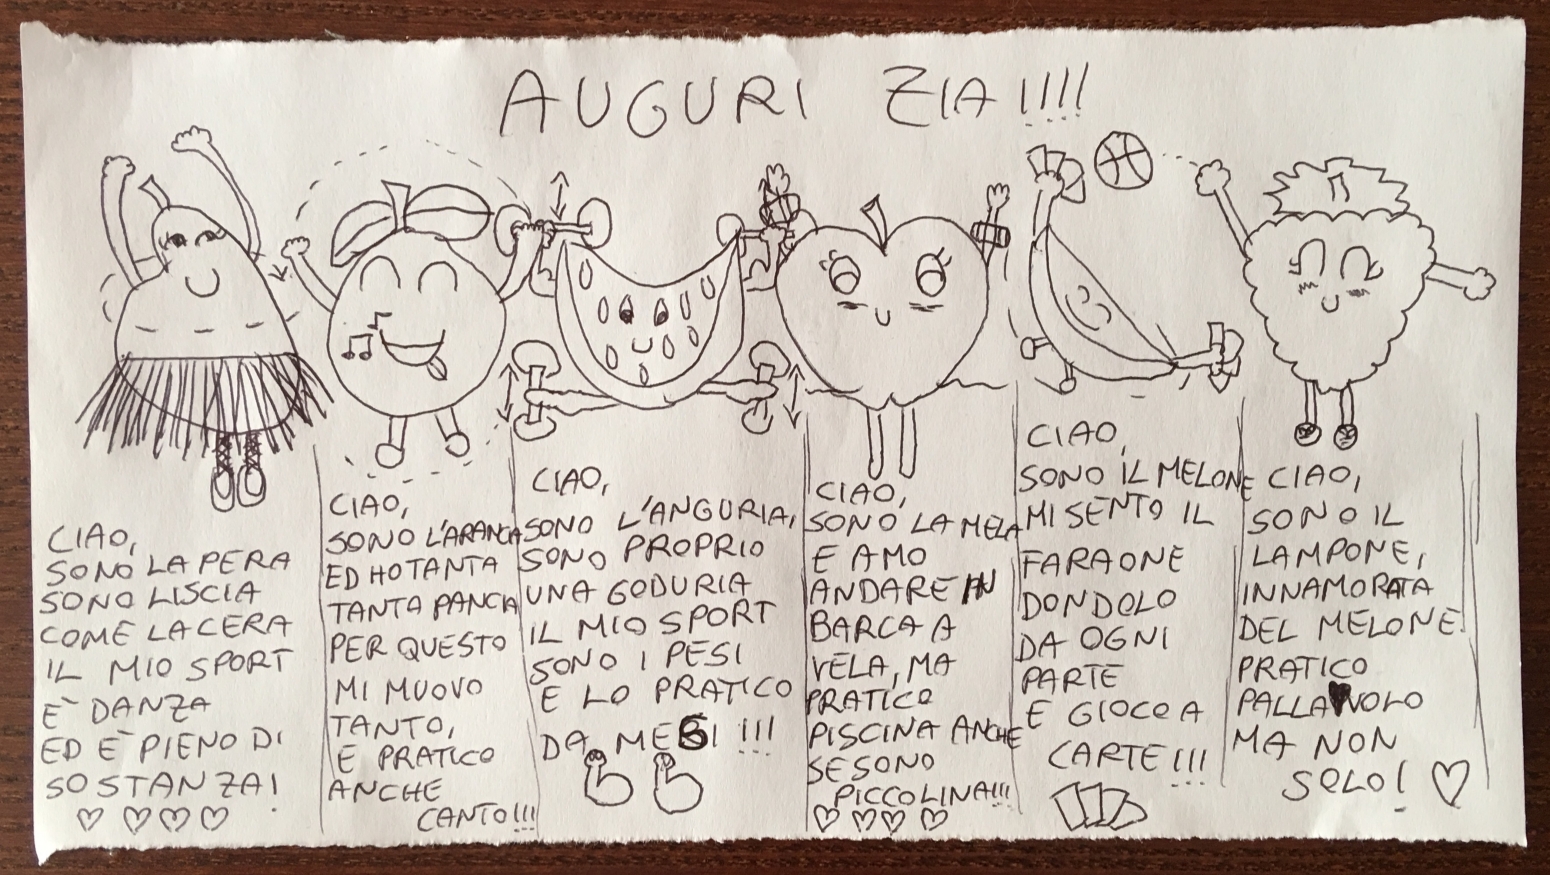 AUGURI ZIA!!!!
CIAO,
SONO LA PERA
SONO LISCIA
COME LA CERA
IL MIO SPORT
È DANZA
ED È PIENO DI
SOSTANZA!
CIAO,
SONO L'ARANCIA
ED HO TANTA
TANTA PANCIA
PER QUESTO
MI MUOVO
TANTO,
E PRATICO
ANCHE
CANTO!!!
CIAO,
SONO L'ANGURIA,
SONO PROPRIO
UNA GODURIA
IL MIO SPORT
SONO I PESI
E LO PRATICO
DA MESI !!!
CIAO,
SONO LA MELA
E AMO
ANDARE IN
BARCA A
VELA, MA
PRATICO
PISCINA ANCHE
SE SONO
PICCOLINA!!!
CIAO,
SONO IL MELONE
MI SENTO IL
FARAONE
DONDOLO
DA OGNI
PARTE
E GIOCO A
CARTE!!!
CIAO,
SONO IL
LAMPONE,
INNAMORATA
DEL MELONE.
PRATICO
PALLAVOLO
MA NON
SOLO!